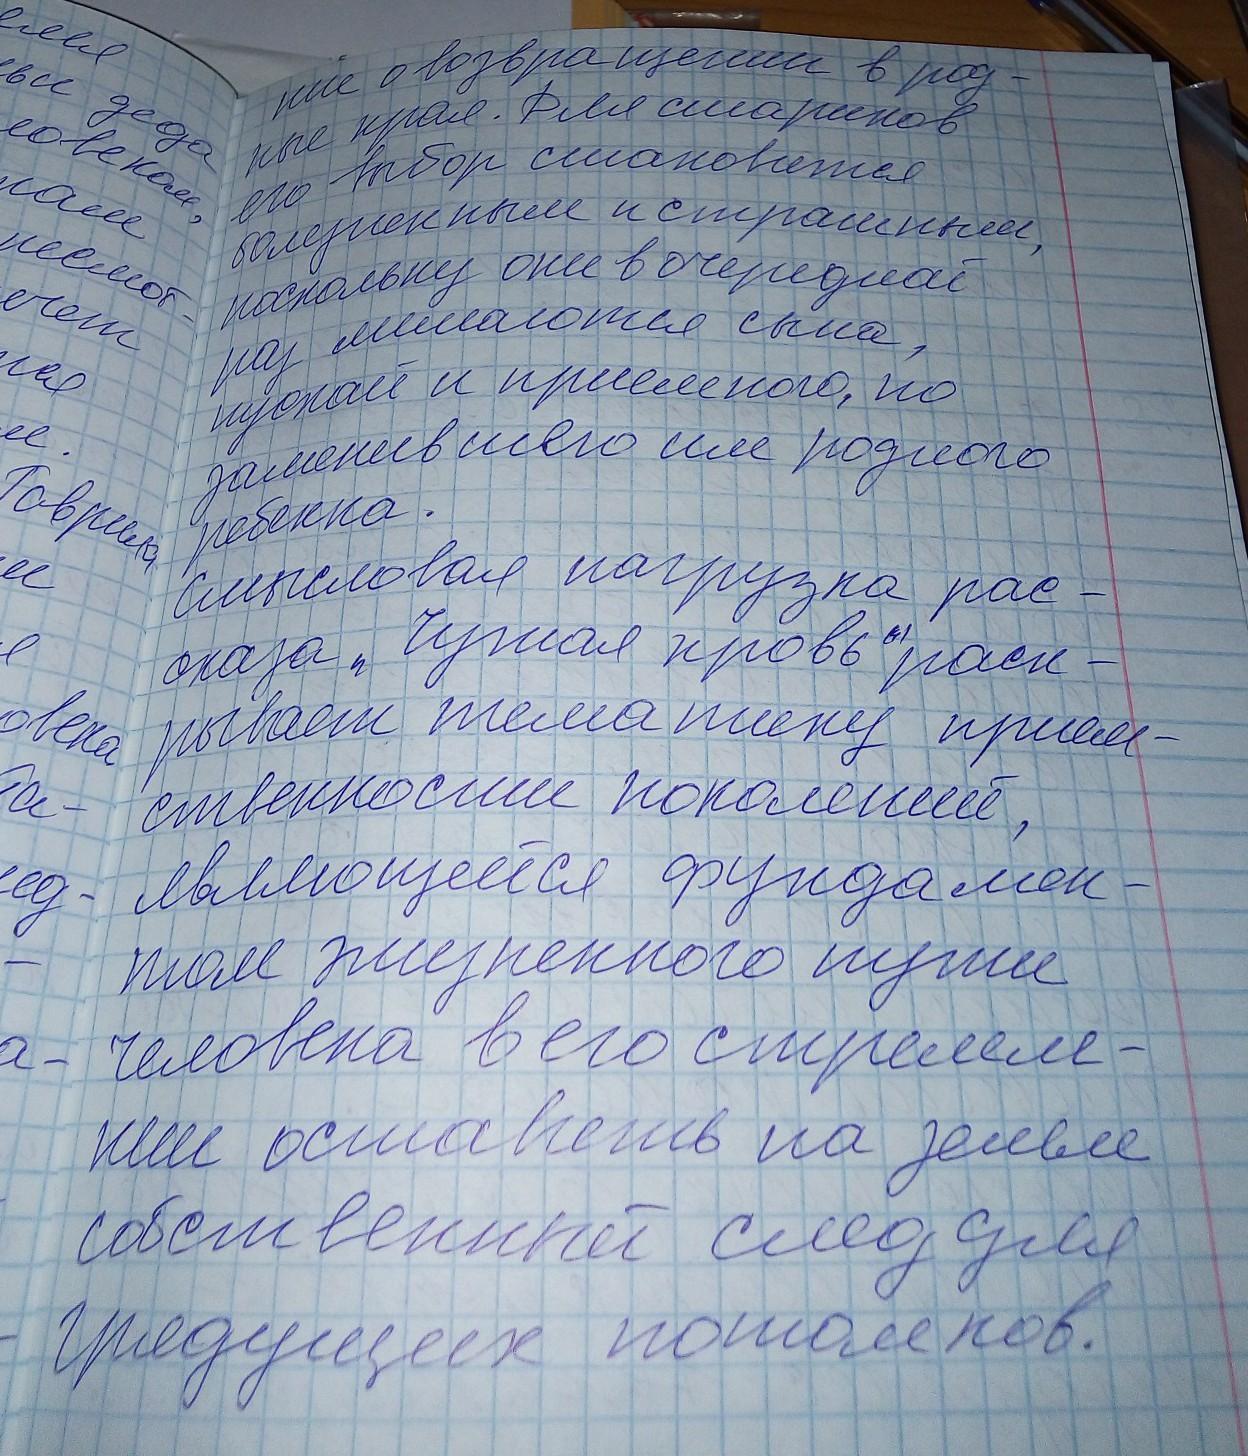 елся
ьи деда
ловеком,
нам
несмот-
очет
ная
ие.
Гаврика,
ии
е
овека
Га-
ед-
-
а-
-
ние о возвращении в род-
ные края. Для стариков
его выбор становится
болезненным и страшным,
поскольку они в очередной
раз лишаются сына,
пускай и приемного, но
заменившего им родного
ребенка.
Смысловая нагрузка рас-
сказа „Чужая кровь" раск-
рывает тематику прием-
ственности поколений,
являющейся фундамен-
том жизненного пути
человека в его стремле-
нии оставить на земле
собственный след для
грядущих потомков.